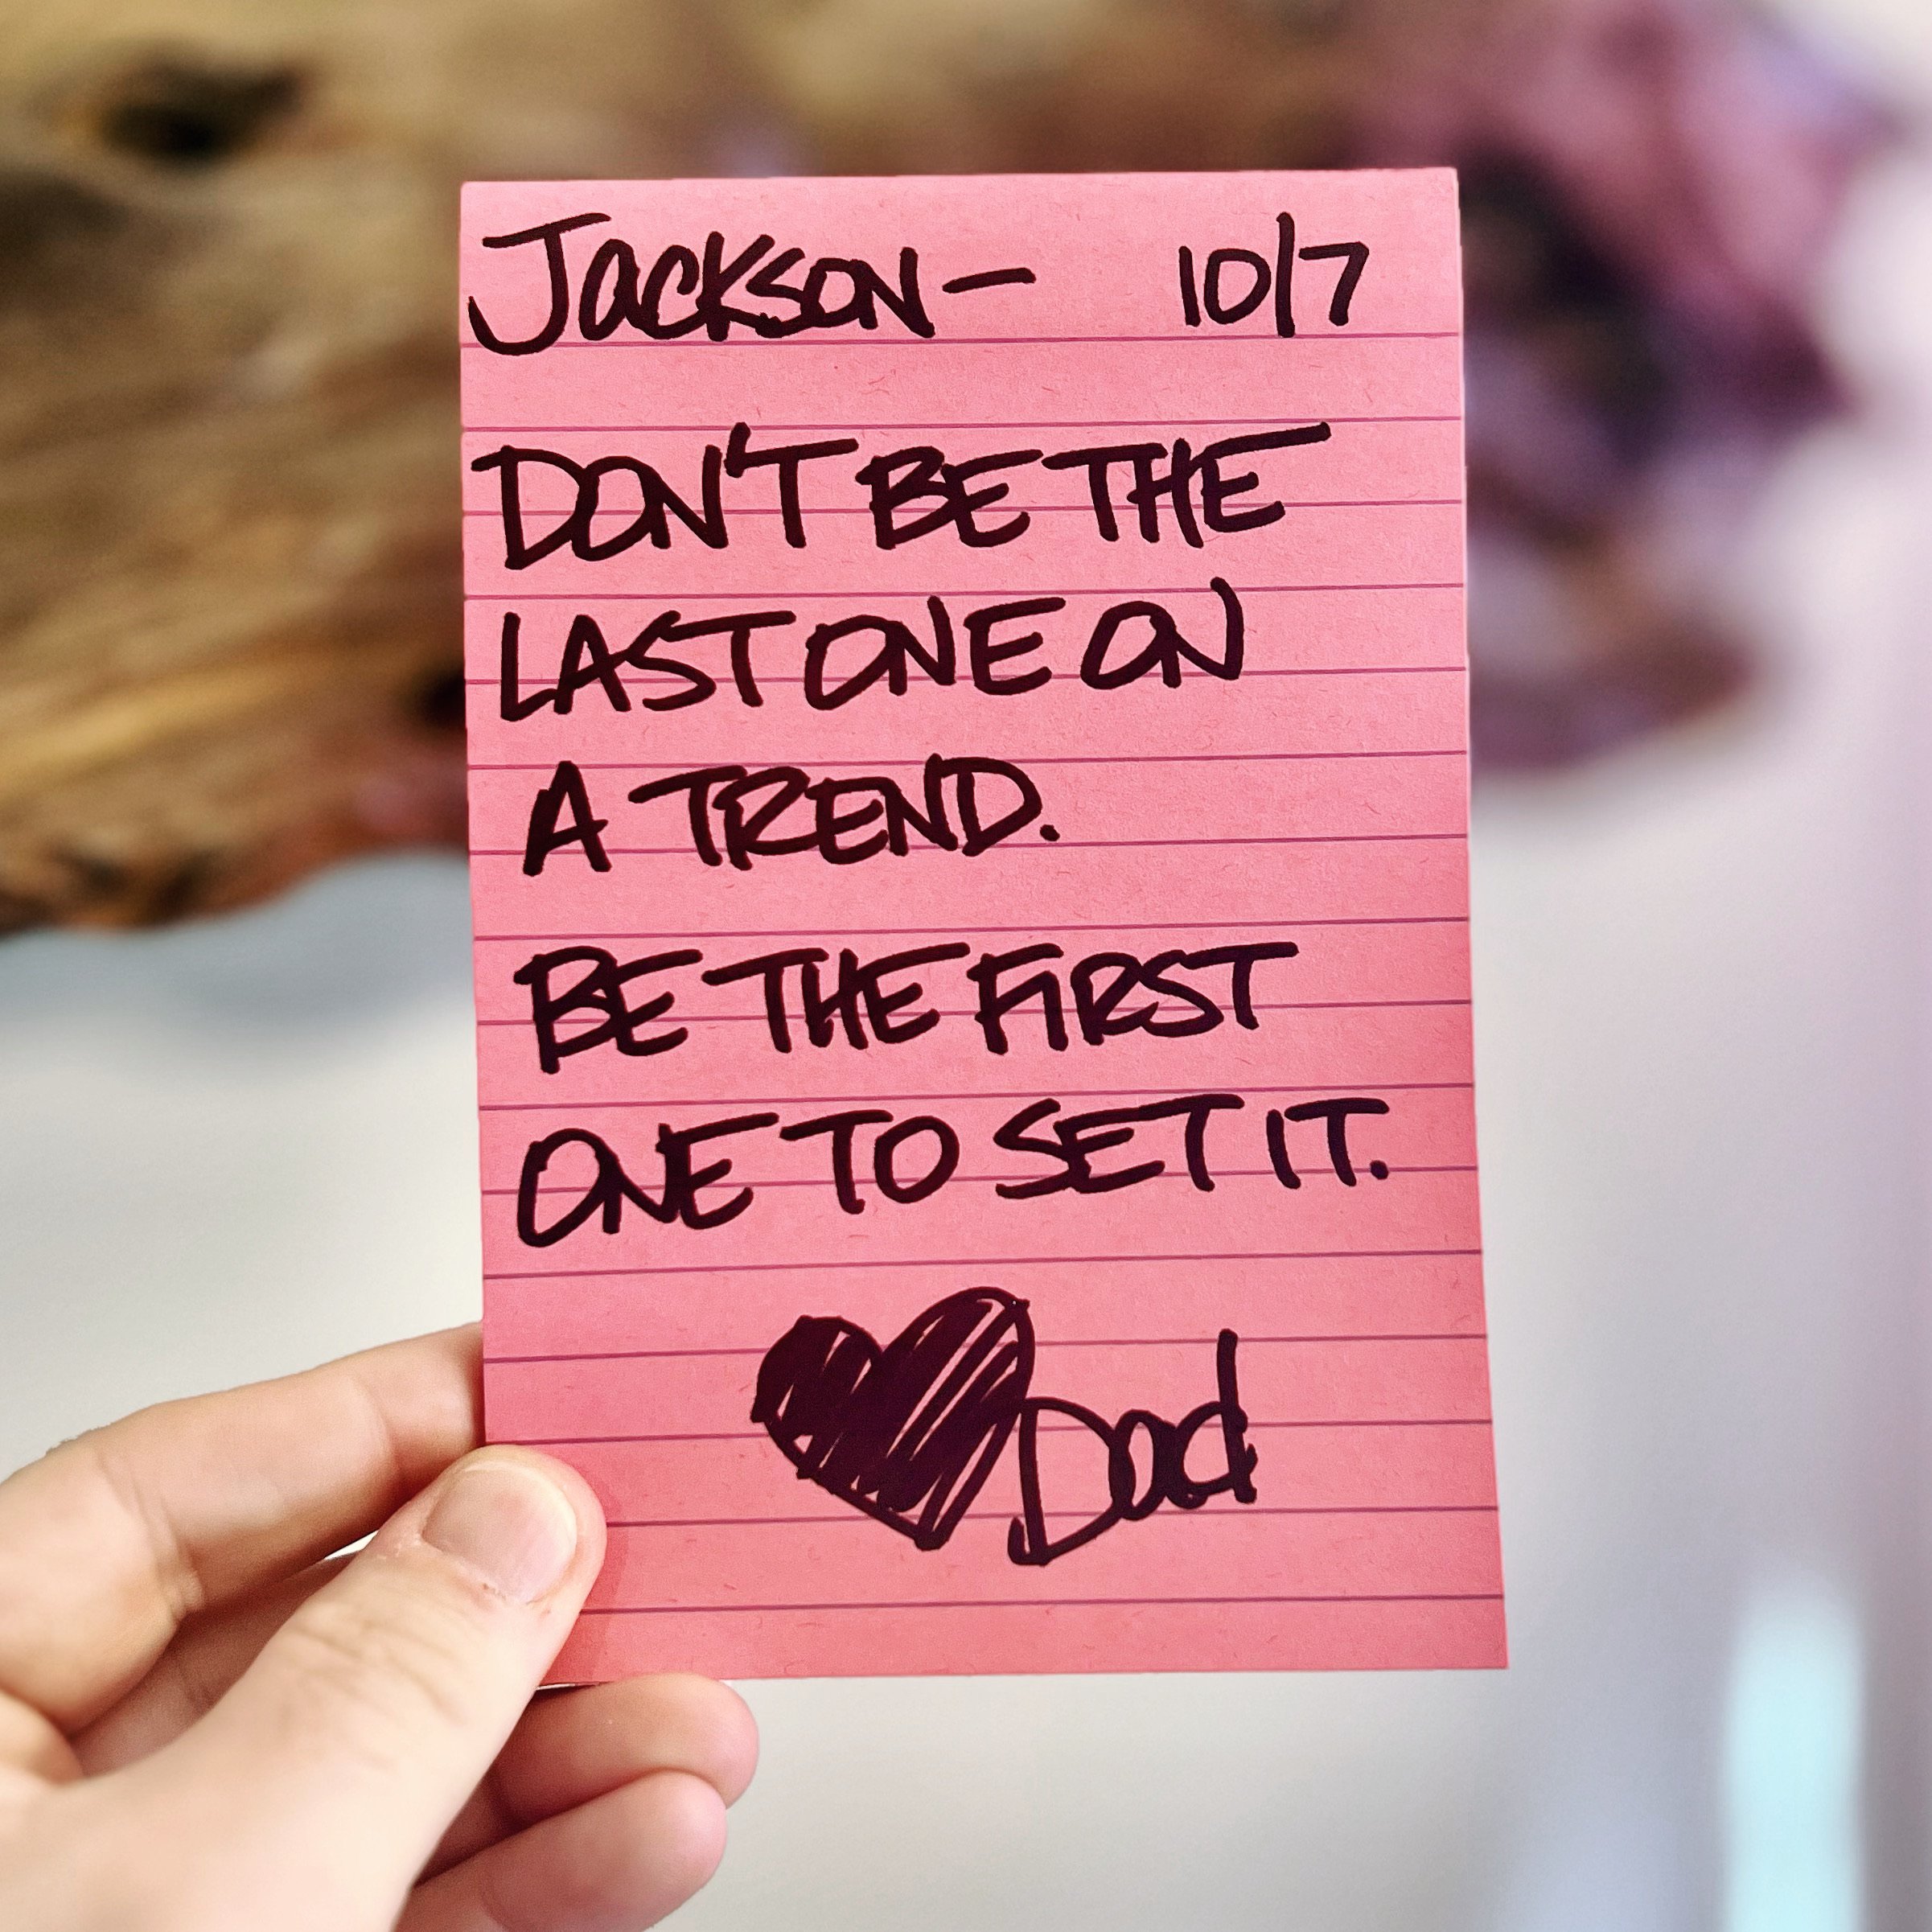 Jackson— 10/7
DON'T BE THE
LAST ONE ON
A TREND.
BE THE FIRST
ONE TO SET IT.
Dad